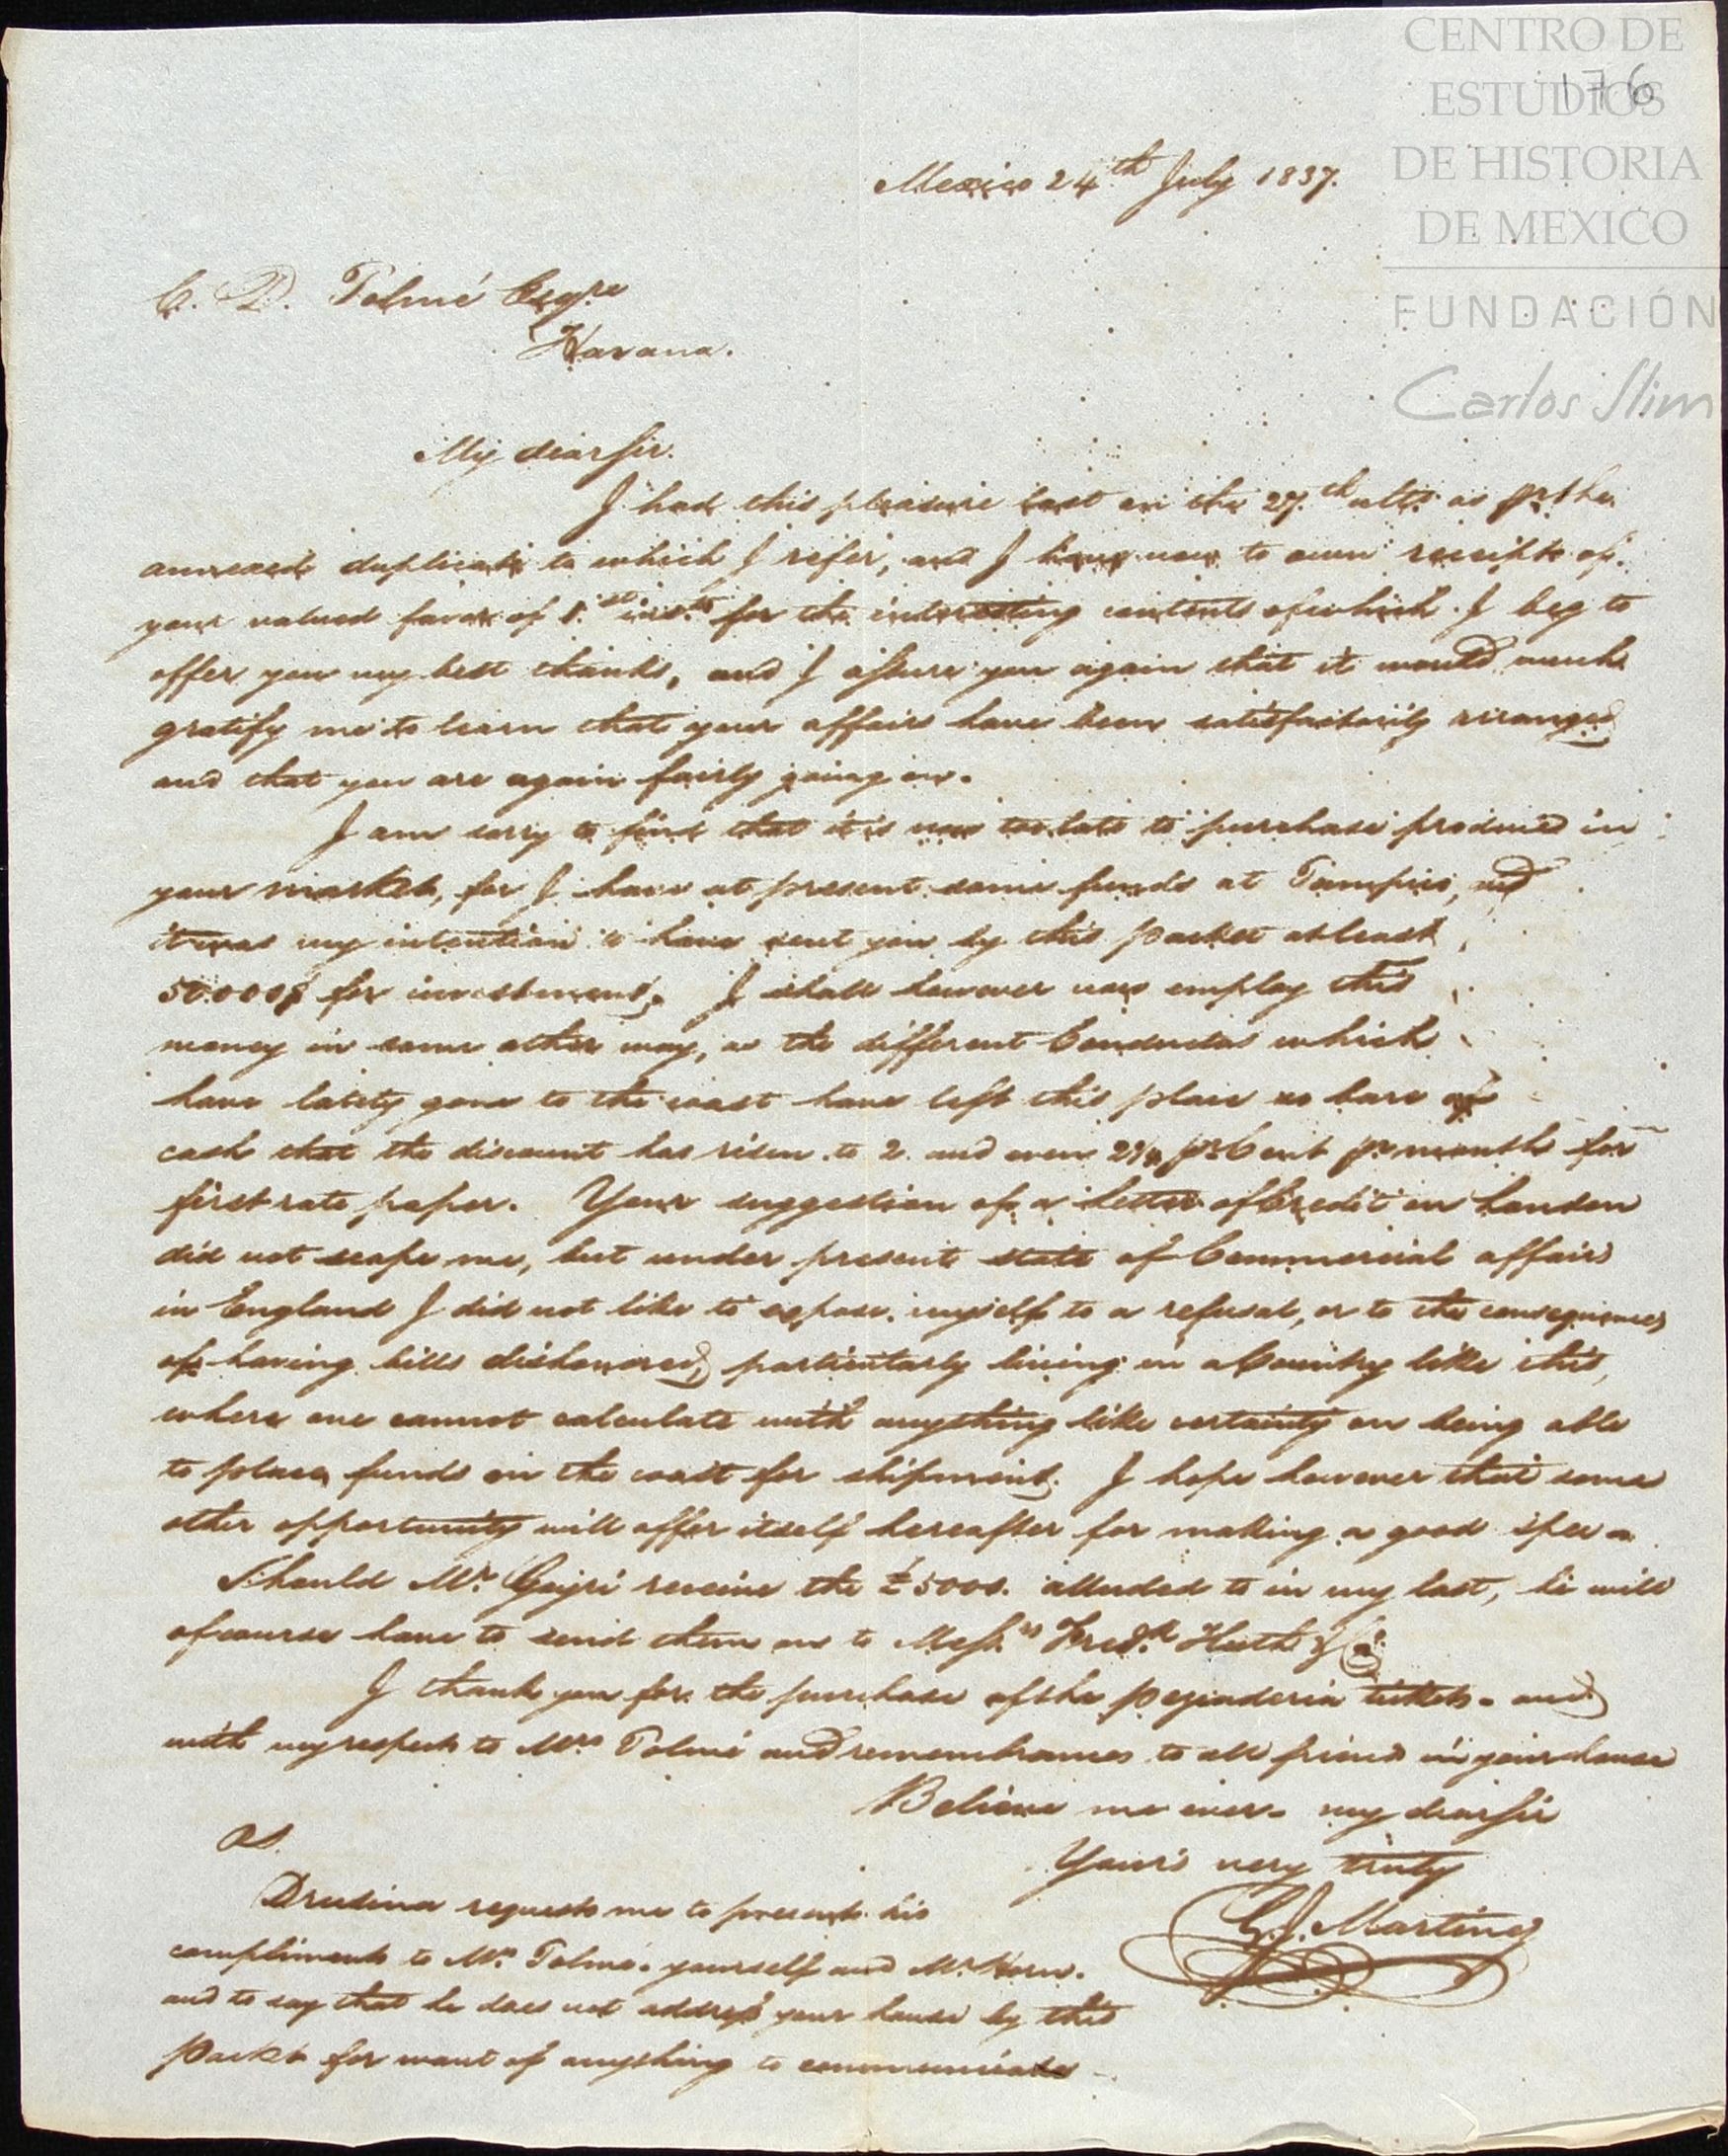 CENTRO DE
ESTUDIOS
DE HISTORIA
DE MEXICO
FUNDACIÓN
Carlos Slim
176
Mexico 24th July 1837.
C. D. Tolmé Esqre
Havana.
My dear Sir.
I had this pleasure last on the 27th ulto. as pr the
annexed duplicate to which I refer, and I have now to own receipt of
your valued favor of 1st inst. for the interesting contents of which I beg to
offer you my best thanks, and I assure you again that it would much
gratify me to learn that your affairs have been satisfactorily arranged
and that you are again fairly going on.
I am sorry to find that it is now too late to purchase produce in
your market, for I have at present some funds at Tampico, and
it was my intention to have sent you by this packet at least
50.000$ for investment. I shall however now employ this
money in some other way, as the different Conductas which
have lately gone to the coast have left this place so bare of
cash that the discount has risen to 2 and even 2½ pr Cent pr month for
first rate paper. Your suggestion of a letter of Credit on London
did not scape me, but under present state of Commercial affairs
in England I did not like to expose myself to a refusal, or to the consequences
of having bills dishonored, particularly living in a Country like this,
where one cannot calculate with anything like certainty on being able
to place funds on the coast for shipment. I hope however that some
other opportunity will offer itself hereafter for making a good spec
Should Mr. receive the £5000. alluded to in my last, he will
of course have to send them on to Messrs Fredk Huth & Co.
I thank you for the purchase of the tickets - and
with my respects to Mrs Tolmé and remembrances to all friends in your house
Believe me ever - my dear Sir
Yours very truly
G. J. Martinez
PS.
Drusina requests me to present his
compliments to Mrs. Tolmé, yourself and Mr.
and to say that he does not address your house by this
Packet for want of anything to communicate -